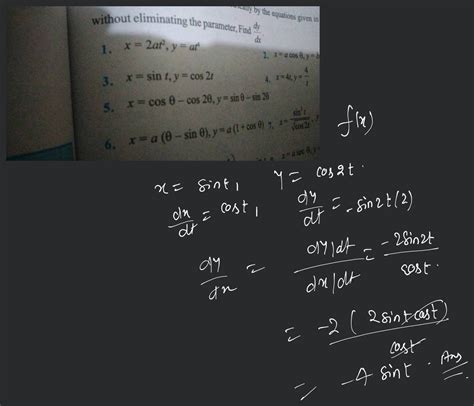 by the equations given in
without eliminating the parameter, Find dy/dx
1. x = 2at², y = at⁴
2. x = a cos θ, y = b
3. x = sin t, y = cos 2t
4. x = 4t, y = 4/t
5. x = cos θ – cos 2θ, y = sin θ – sin 2θ
6. x = a (θ – sin θ), y = a (1 + cos θ) 7. x = sin³ t/√cos 2t
x = a sec θ, y
f(x)
x = sint, y = cos2t.
dx/dt = cost, dy/dt = -sin2t(2)
dy/dx = dy/dt / dx/dt = -2sin2t / cost.
= -2(2sint cost) / cost
= -4 sint. Ans